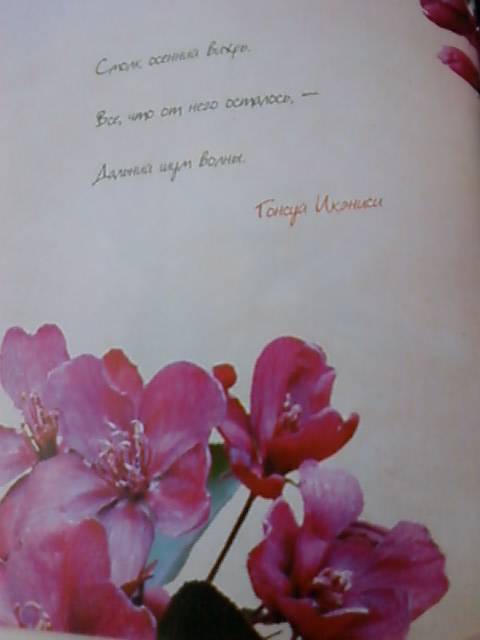 Смолк осенний вихрь.
Все, что от него осталось, —
Дальний шум волны.
Гонсуй Икэниси